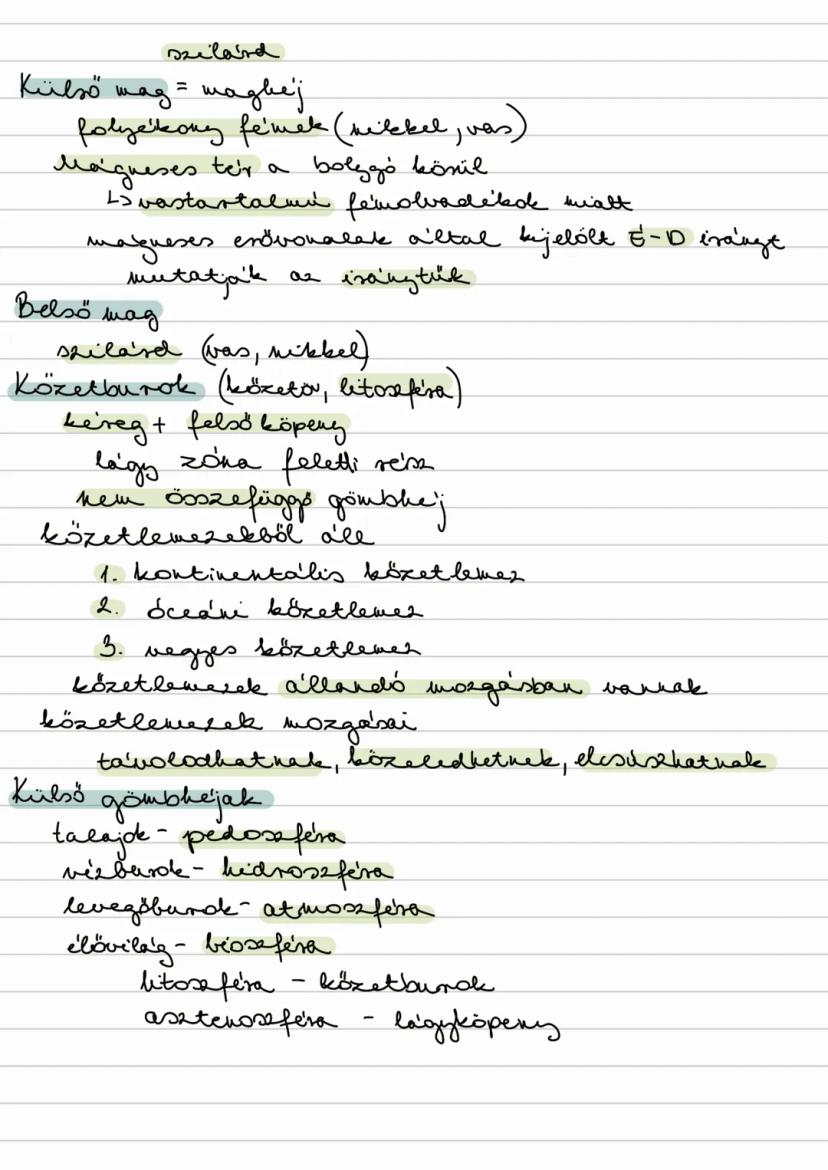 szilárd
Külső mag = maghéj
folyékony fémek (nikkel, vas)
Mágneses tér a bolygó körül
↳ vastartalmú fémolvadékok miatt
mágneses erővonalak által kijelölt É-D irányt
mutatják az iránytűk
Belső mag
szilárd (vas, nikkel)
Kőzetburok (kőzetöv, litoszféra)
kéreg + felső köpeny
lágy zóna feletti rész
nem összefüggő gömbhéj
kőzetlemezekből áll
1. kontinentális kőzetlemez
2. óceáni kőzetlemez
3. vegyes kőzetlemez
kőzetlemezek állandó mozgásban vannak
kőzetlemezek mozgásai
távolodhatnak, közeledhetnek, elcsúszhatnak
Külső gömbhéjak
talajok - pedoszféra
vízburok - hidroszféra
levegőburok - atmoszféra
élővilág - bioszféra
litoszféra - kőzetburok
asztenoszféra - lágyköpeny